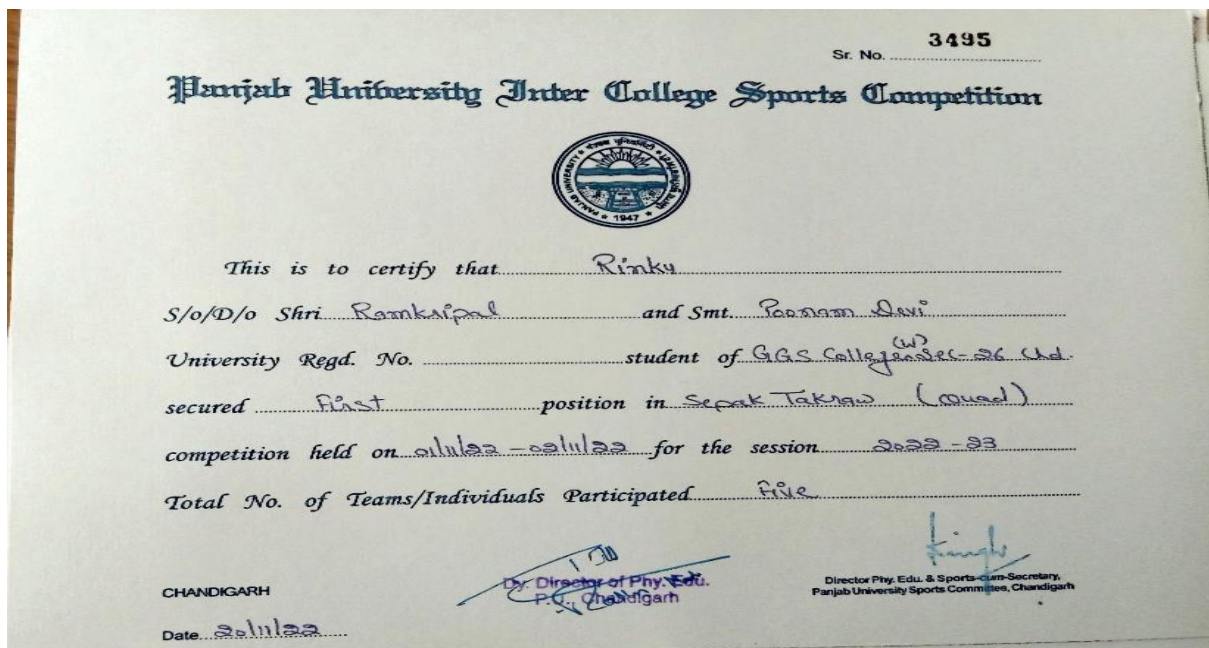 Sr. No. 3495
Panjab University Inter College Sports Competition
PANJAB UNIVERSITY
★ 1947 ★
This is to certify that Rinky
S/o/D/o Shri Ramkripal and Smt. Poonam Devi
University Regd. No. student of GGS College (W) Sec-26 Chd.
secured First position in Sepak Takraw (Quad)
competition held on 01/11/22 - 02/11/22 for the session 2022-23
Total No. of Teams/Individuals Participated Five
Dy. Director of Phy. Edu.
P.U., Chandigarh
Director Phy. Edu. & Sports-cum-Secretary,
Panjab University Sports Committee, Chandigarh
CHANDIGARH
Date 20/11/22